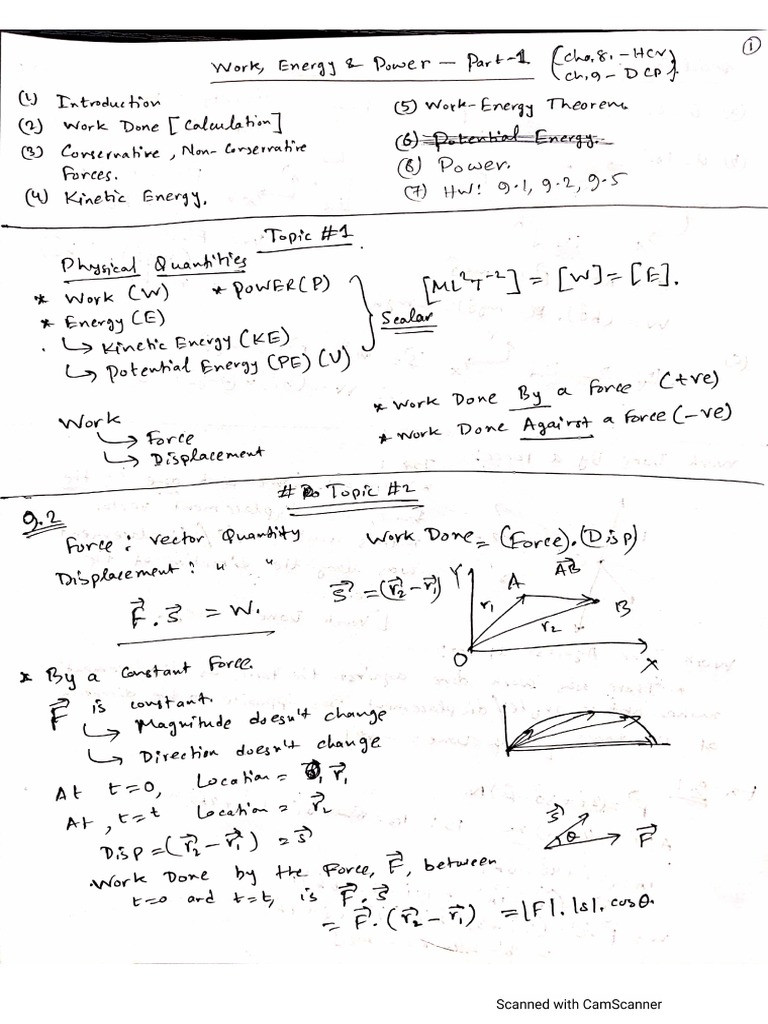 ①
Work, Energy & Power – Part-1 (cho,8, – HCV)
(ch,9 – DCP).
(1) Introduction
(2) Work Done [Calculation]
(3) Conservative, Non-Conservative
Forces.
(4) Kinetic Energy.
(5) Work-Energy Theorem.
(6) Potential Energy.
(8) Power.
(7) HW: 9.1, 9.2, 9.5
Topic #1
Physical Quantities
* Work (W) * POWER(P)
* Energy (E)
↳ Kinetic Energy (KE)
↳ Potential Energy (PE) (U)
Scalar
[ML²T⁻²] = [W] = [E].
Work
↳ Force
↳ Displacement
* Work Done By a Force (+ve)
* Work Done Against a Force (-ve)
# Topic #2
9.2
Force : Vector Quantity
Displacement : " "
F⃗ . s⃗ = W.
Work Done = (Force).(Disp)
s⃗ = (r⃗₂ – r⃗₁)
Y A AB⃗
r₁ B
r₂
O X
* By a Constant Force.
F⃗ is constant.
↳ Magnitude doesn't change
↳ Direction doesn't change
At t=0, Location = r⃗₁
At, t=t Location = r⃗₂
Disp = (r⃗₂ – r⃗₁) = s⃗
s⃗ θ F⃗
Work Done by the Force, F⃗, between
t=0 and t=t, is F⃗ . s⃗
= F⃗ . (r⃗₂ – r⃗₁) = |F|. |s|. cosθ.
Scanned with CamScanner